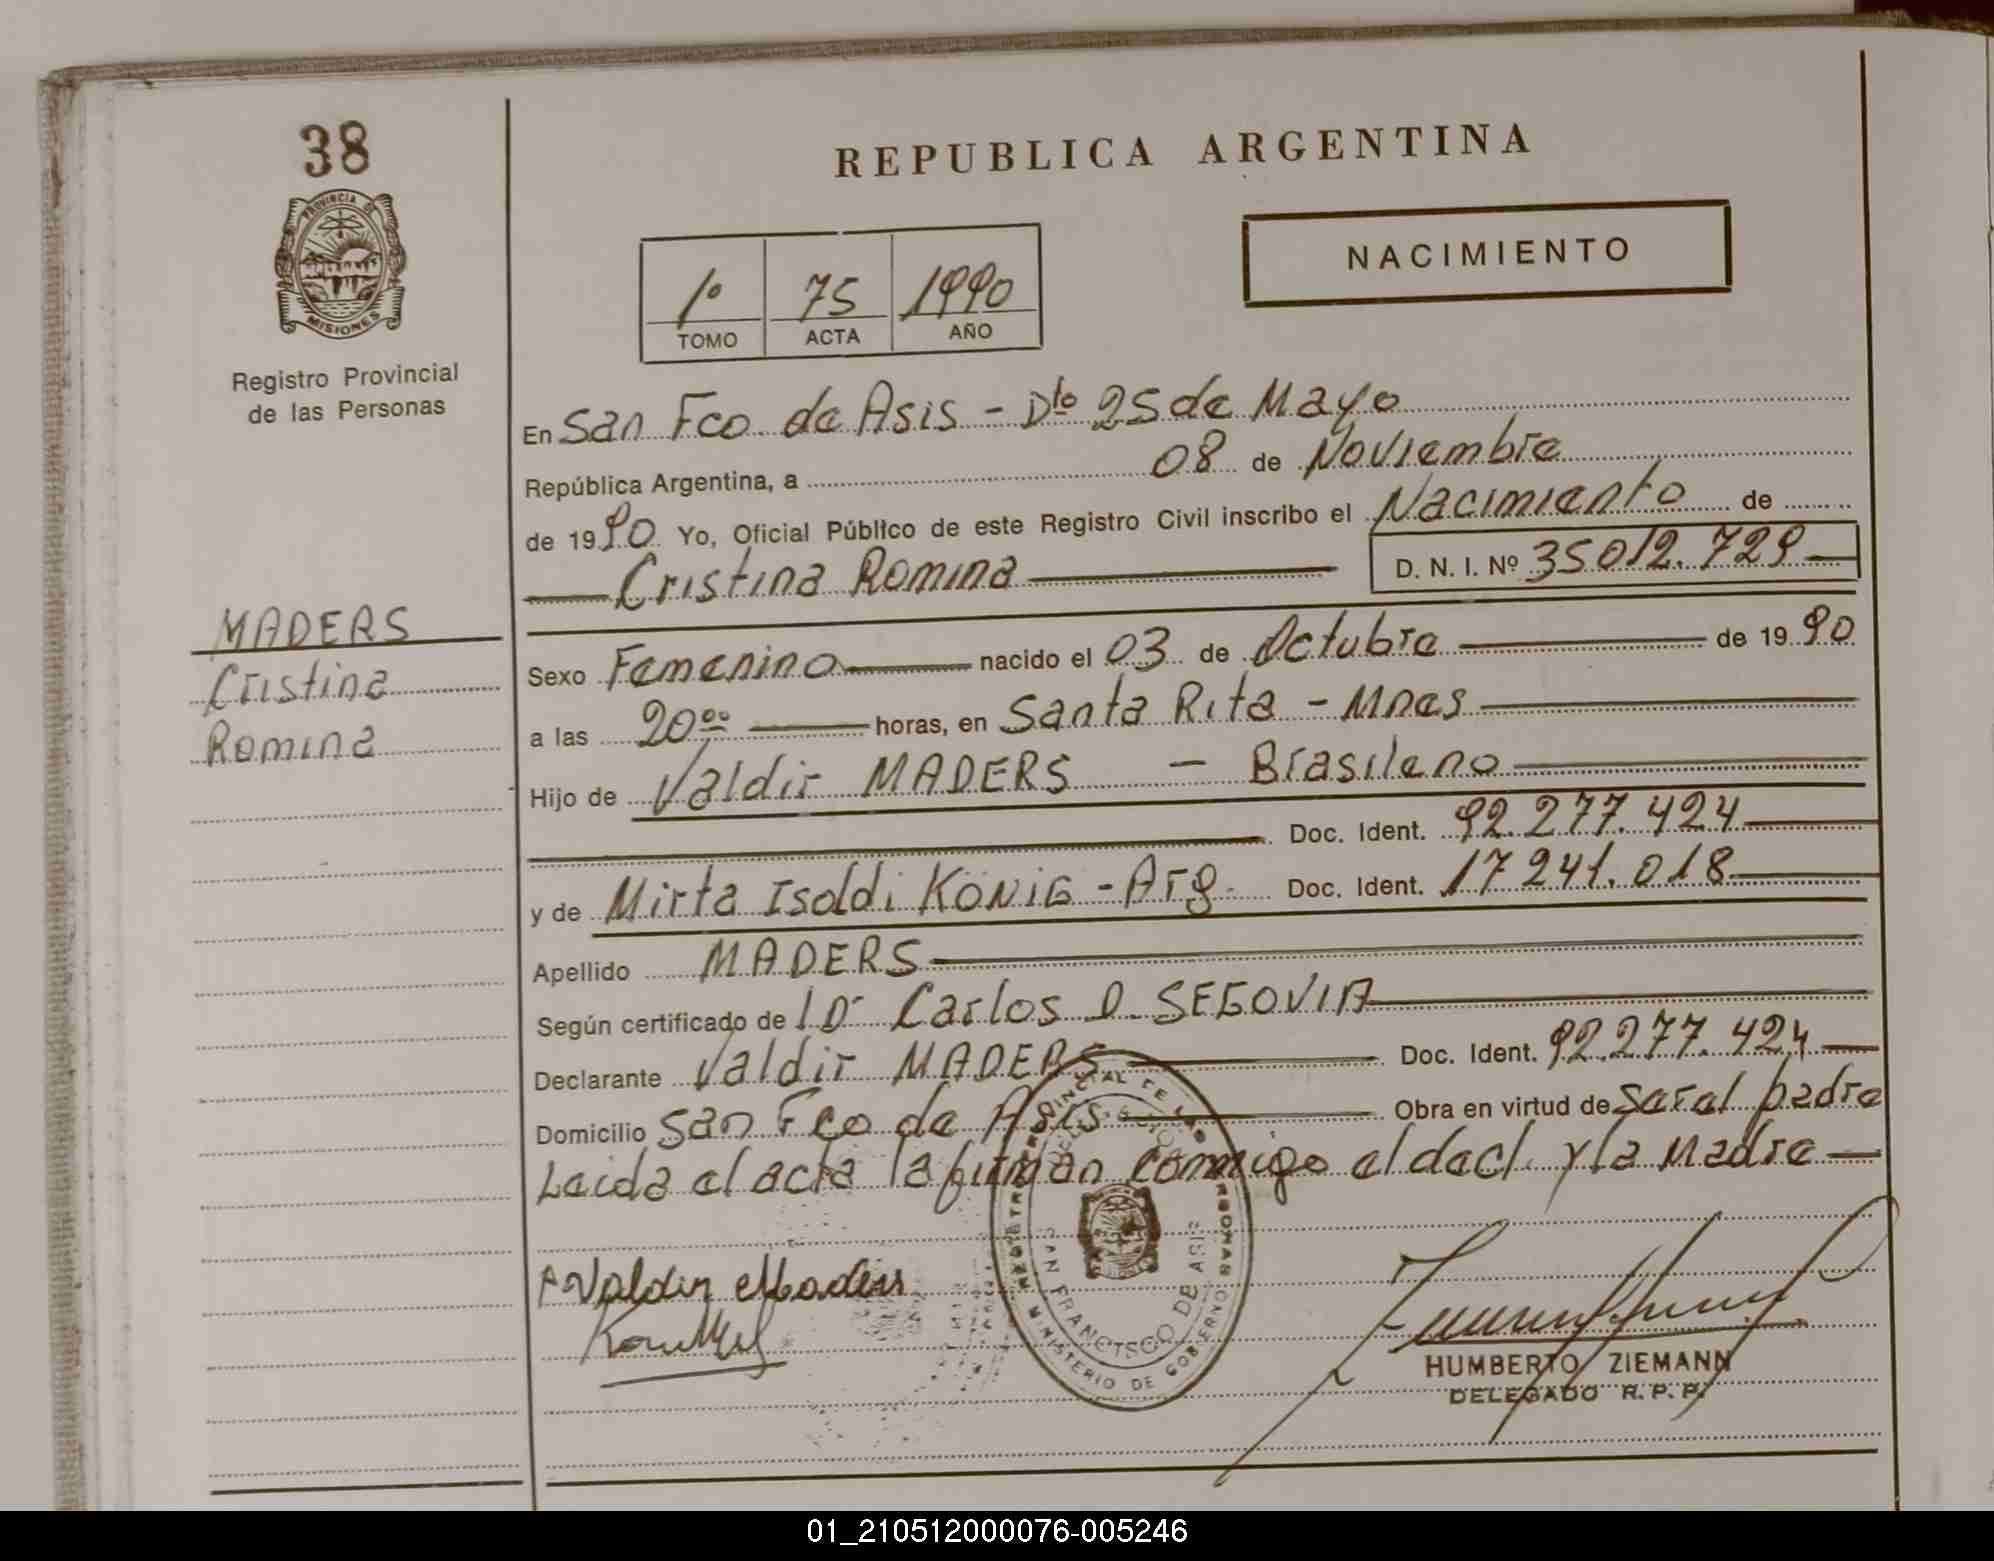 38
REPUBLICA ARGENTINA
PROVINCIA DE
MISIONES
NACIMIENTO
1º 75 1990
TOMO ACTA AÑO
Registro Provincial
de las Personas
En San Fco. de Asis - Dto 25 de Mayo
República Argentina, a 08 de Noviembre
de 1990 Yo, Oficial Público de este Registro Civil inscribo el Nacimiento de
Cristina Romina D. N. I. Nº 35012.729
MADERS
Cristina
Romina
Sexo Femenino nacido el 03 de Octubre de 1990
a las 20 00 horas, en Santa Rita - Mnes
Hijo de Valdir MADERS - Brasileno
Doc. Ident. 92.277.424
y de Mirta Isoldi KÖNIG - Arg. Doc. Ident. 17241.018
Apellido MADERS
Según certificado de Dr Carlos D. SEGOVIA
Declarante Valdir MADERS Doc. Ident. 92.277.424
Domicilio San Fco de Asis Obra en virtud de ser el padre
Leida el acta la firman conmigo el decl. y la Madre
Valdir Maders
REGISTRO PROVINCIAL DE LAS PERSONAS
SAN FRANCISCO DE ASIS
MINISTERIO DE GOBIERNO
HUMBERTO ZIEMANN
DELEGADO R. P. P.
01_210512000076-005246